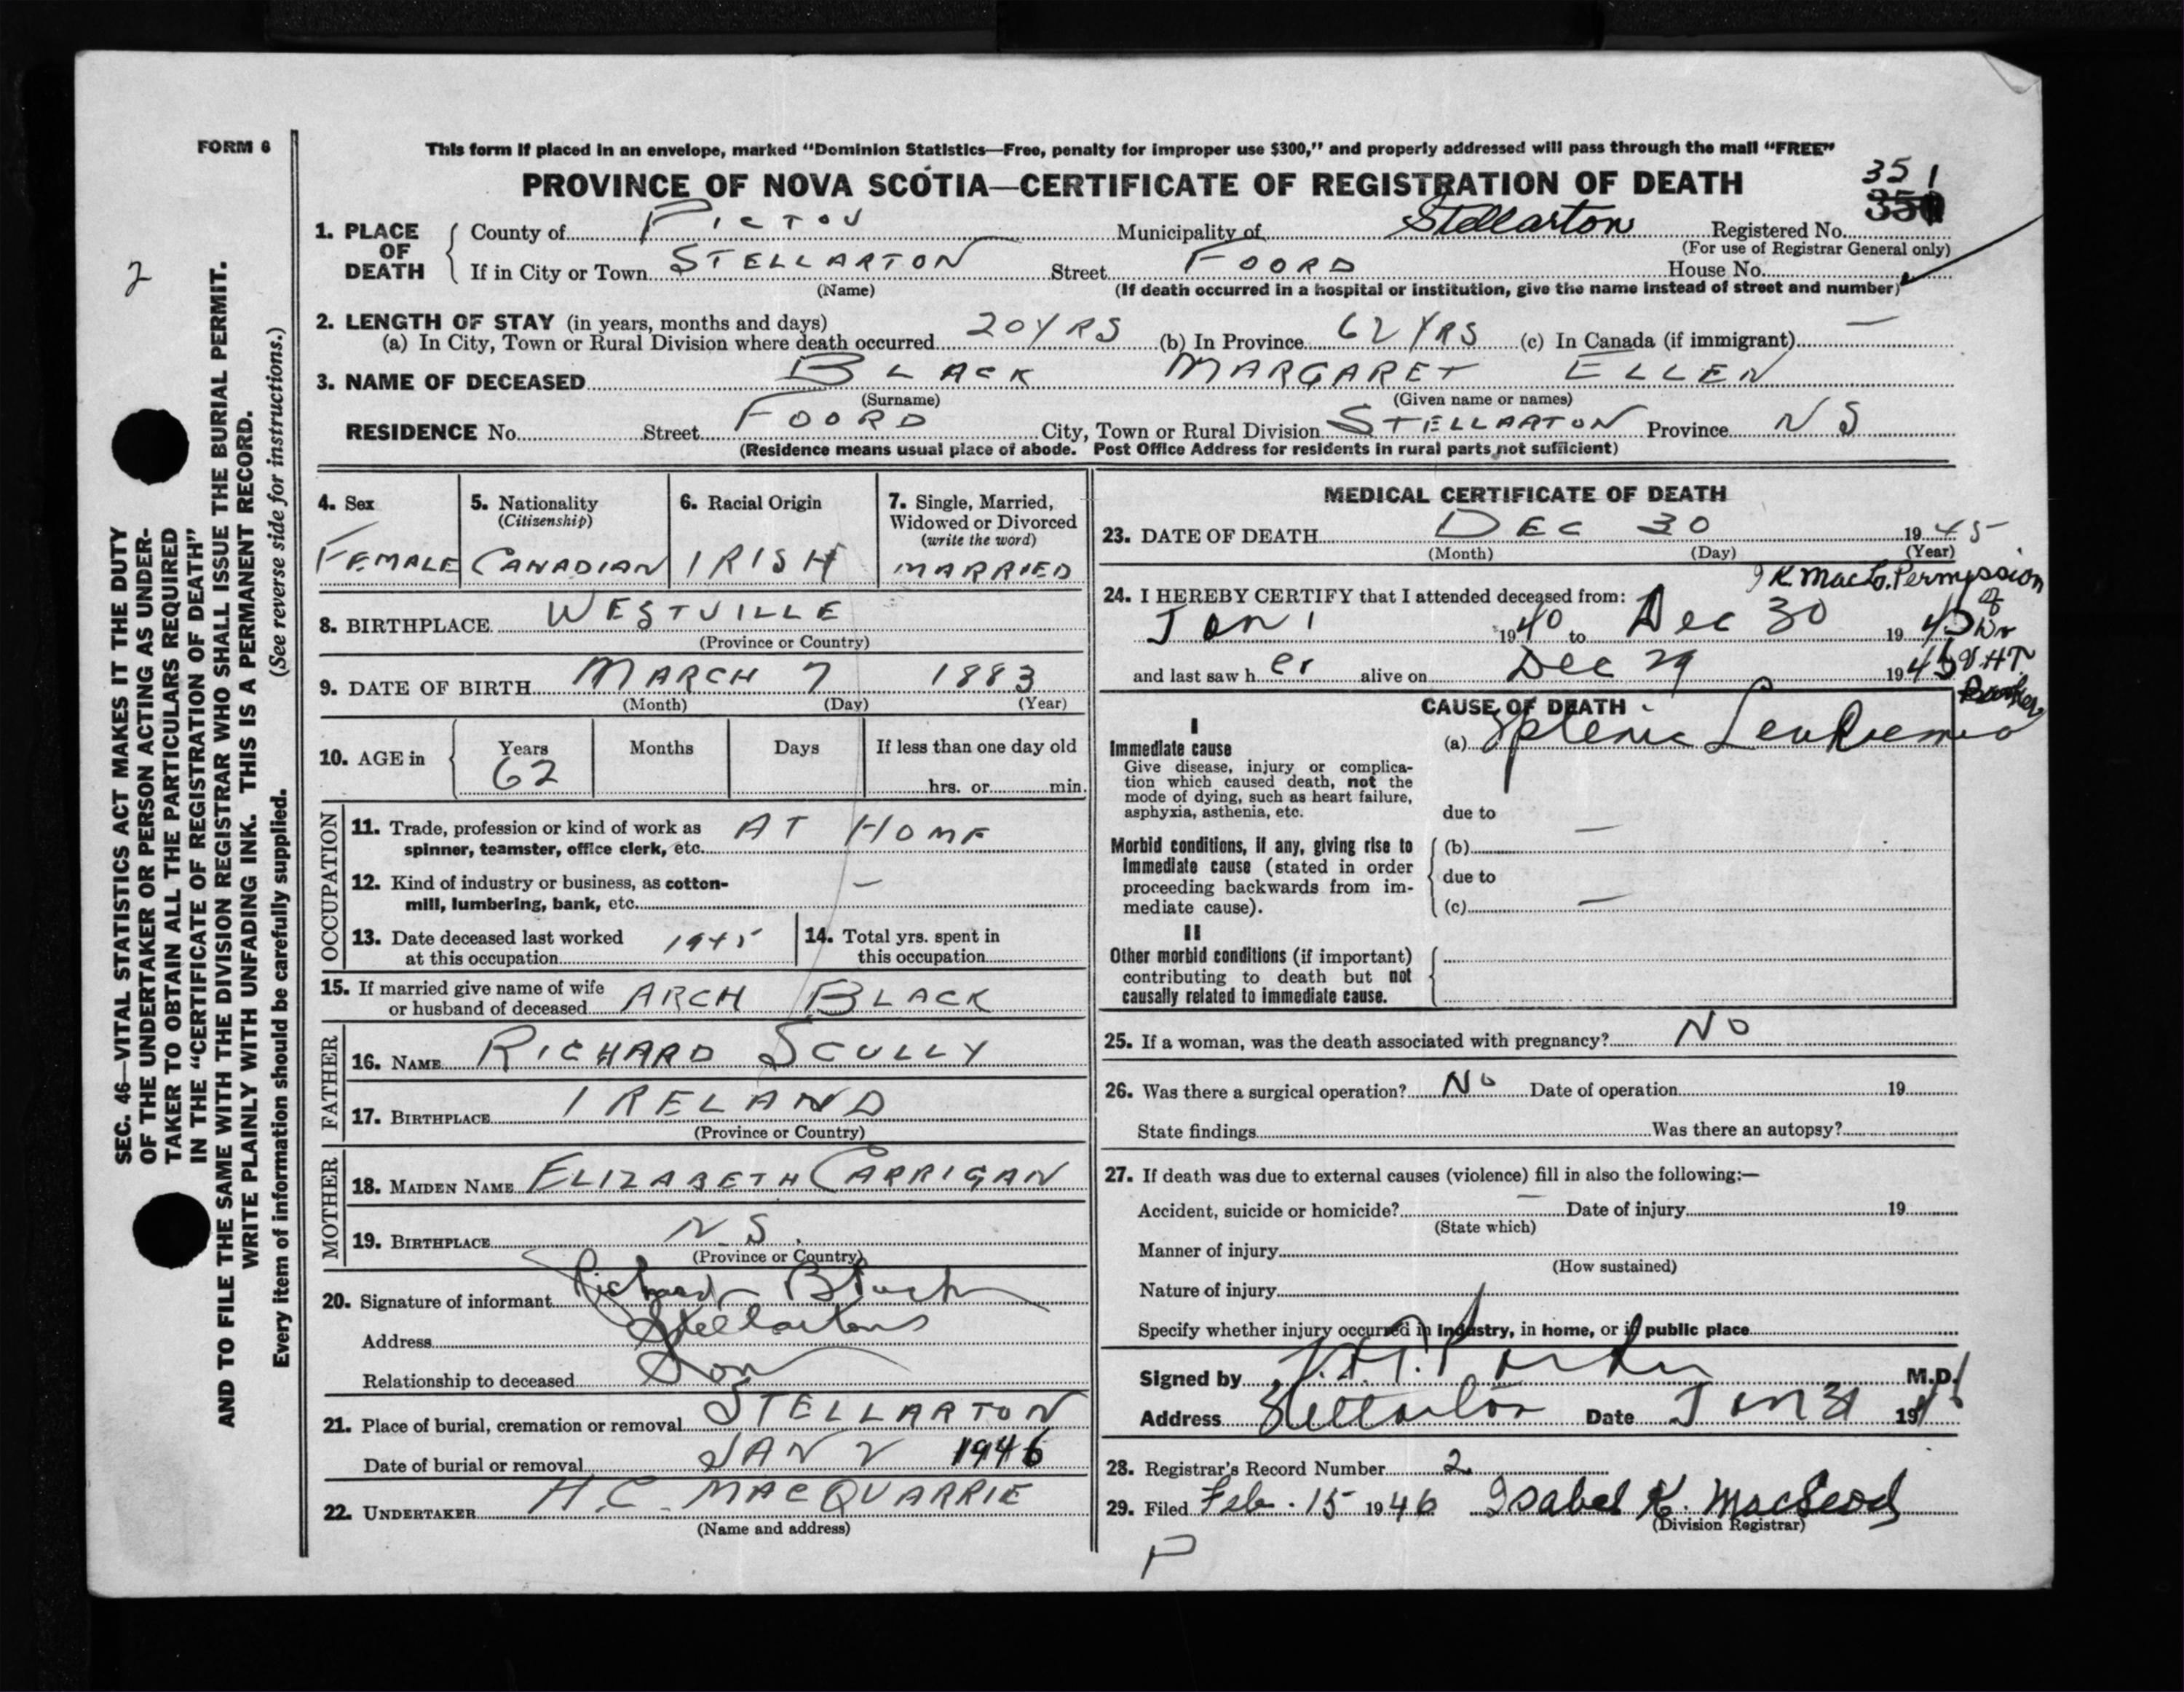 FORM 6
This form if placed in an envelope, marked "Dominion Statistics—Free, penalty for improper use $300," and properly addressed will pass through the mail "FREE"
PROVINCE OF NOVA SCOTIA—CERTIFICATE OF REGISTRATION OF DEATH
351
350
2
1. PLACE OF DEATH
County of PICTOU Municipality of Stellarton Registered No.
(For use of Registrar General only)
If in City or Town STELLARTON Street FOORD House No.
(Name) (If death occurred in a hospital or institution, give the name instead of street and number)
2. LENGTH OF STAY (in years, months and days)
(a) In City, Town or Rural Division where death occurred 20 YRS (b) In Province 62 YRS (c) In Canada (if immigrant) —
3. NAME OF DECEASED BLACK MARGARET ELLEN
(Surname) (Given name or names)
RESIDENCE No. Street FOORD City, Town or Rural Division STELLARTON Province N S
(Residence means usual place of abode. Post Office Address for residents in rural parts not sufficient)
SEC. 46—VITAL STATISTICS ACT MAKES IT THE DUTY
OF THE UNDERTAKER OR PERSON ACTING AS UNDER-
TAKER TO OBTAIN ALL THE PARTICULARS REQUIRED
IN THE "CERTIFICATE OF REGISTRATION OF DEATH"
AND TO FILE THE SAME WITH THE DIVISION REGISTRAR WHO SHALL ISSUE THE BURIAL PERMIT.
WRITE PLAINLY WITH UNFADING INK. THIS IS A PERMANENT RECORD.
Every item of information should be carefully supplied. (See reverse side for instructions.)
4. Sex
FEMALE
5. Nationality
(Citizenship)
CANADIAN
6. Racial Origin
IRISH
7. Single, Married,
Widowed or Divorced
(write the word)
MARRIED
8. BIRTHPLACE WESTVILLE
(Province or Country)
9. DATE OF BIRTH MARCH 7 1883
(Month) (Day) (Year)
10. AGE in Years Months Days If less than one day old
62
hrs. or min.
OCCUPATION
11. Trade, profession or kind of work as
spinner, teamster, office clerk, etc. AT HOME
12. Kind of industry or business, as cotton-
mill, lumbering, bank, etc. —
13. Date deceased last worked
at this occupation 1945
14. Total yrs. spent in
this occupation
15. If married give name of wife
or husband of deceased ARCH BLACK
FATHER
16. NAME RICHARD SCULLY
17. BIRTHPLACE IRELAND
(Province or Country)
MOTHER
18. MAIDEN NAME ELIZABETH CARRIGAN
19. BIRTHPLACE N.S.
(Province or Country)
20. Signature of informant Richard Black
Address Stellarton
Relationship to deceased Son
21. Place of burial, cremation or removal STELLARTON
Date of burial or removal JAN 2 1946
22. UNDERTAKER H.C. MACQUARRIE
(Name and address)
MEDICAL CERTIFICATE OF DEATH
23. DATE OF DEATH DEC 30 1945
(Month) (Day) (Year)
I K. MacL. Permission
24. I HEREBY CERTIFY that I attended deceased from:
Jan 1 1940 to Dec 30 1945
and last saw her alive on Dec 29 1945
CAUSE OF DEATH
I
Immediate cause (a) Splenic Leukaemia
Give disease, injury or complica-
tion which caused death, not the
mode of dying, such as heart failure,
asphyxia, asthenia, etc.
due to
Morbid conditions, if any, giving rise to (b) —
immediate cause (stated in order
proceeding backwards from im-
mediate cause).
due to
(c) —
II
Other morbid conditions (if important)
contributing to death but not
causally related to immediate cause.
25. If a woman, was the death associated with pregnancy? NO
26. Was there a surgical operation? No Date of operation 19
State findings Was there an autopsy?
27. If death was due to external causes (violence) fill in also the following:—
Accident, suicide or homicide? — Date of injury 19
(State which)
Manner of injury
(How sustained)
Nature of injury
Specify whether injury occurred in industry, in home, or in public place
Signed by V.H.T. Parker M.D.
Address Stellarton Date Jan 31 19
28. Registrar's Record Number 2
29. Filed Feb. 15 1946 Isabel K. MacLeod
(Division Registrar)
P